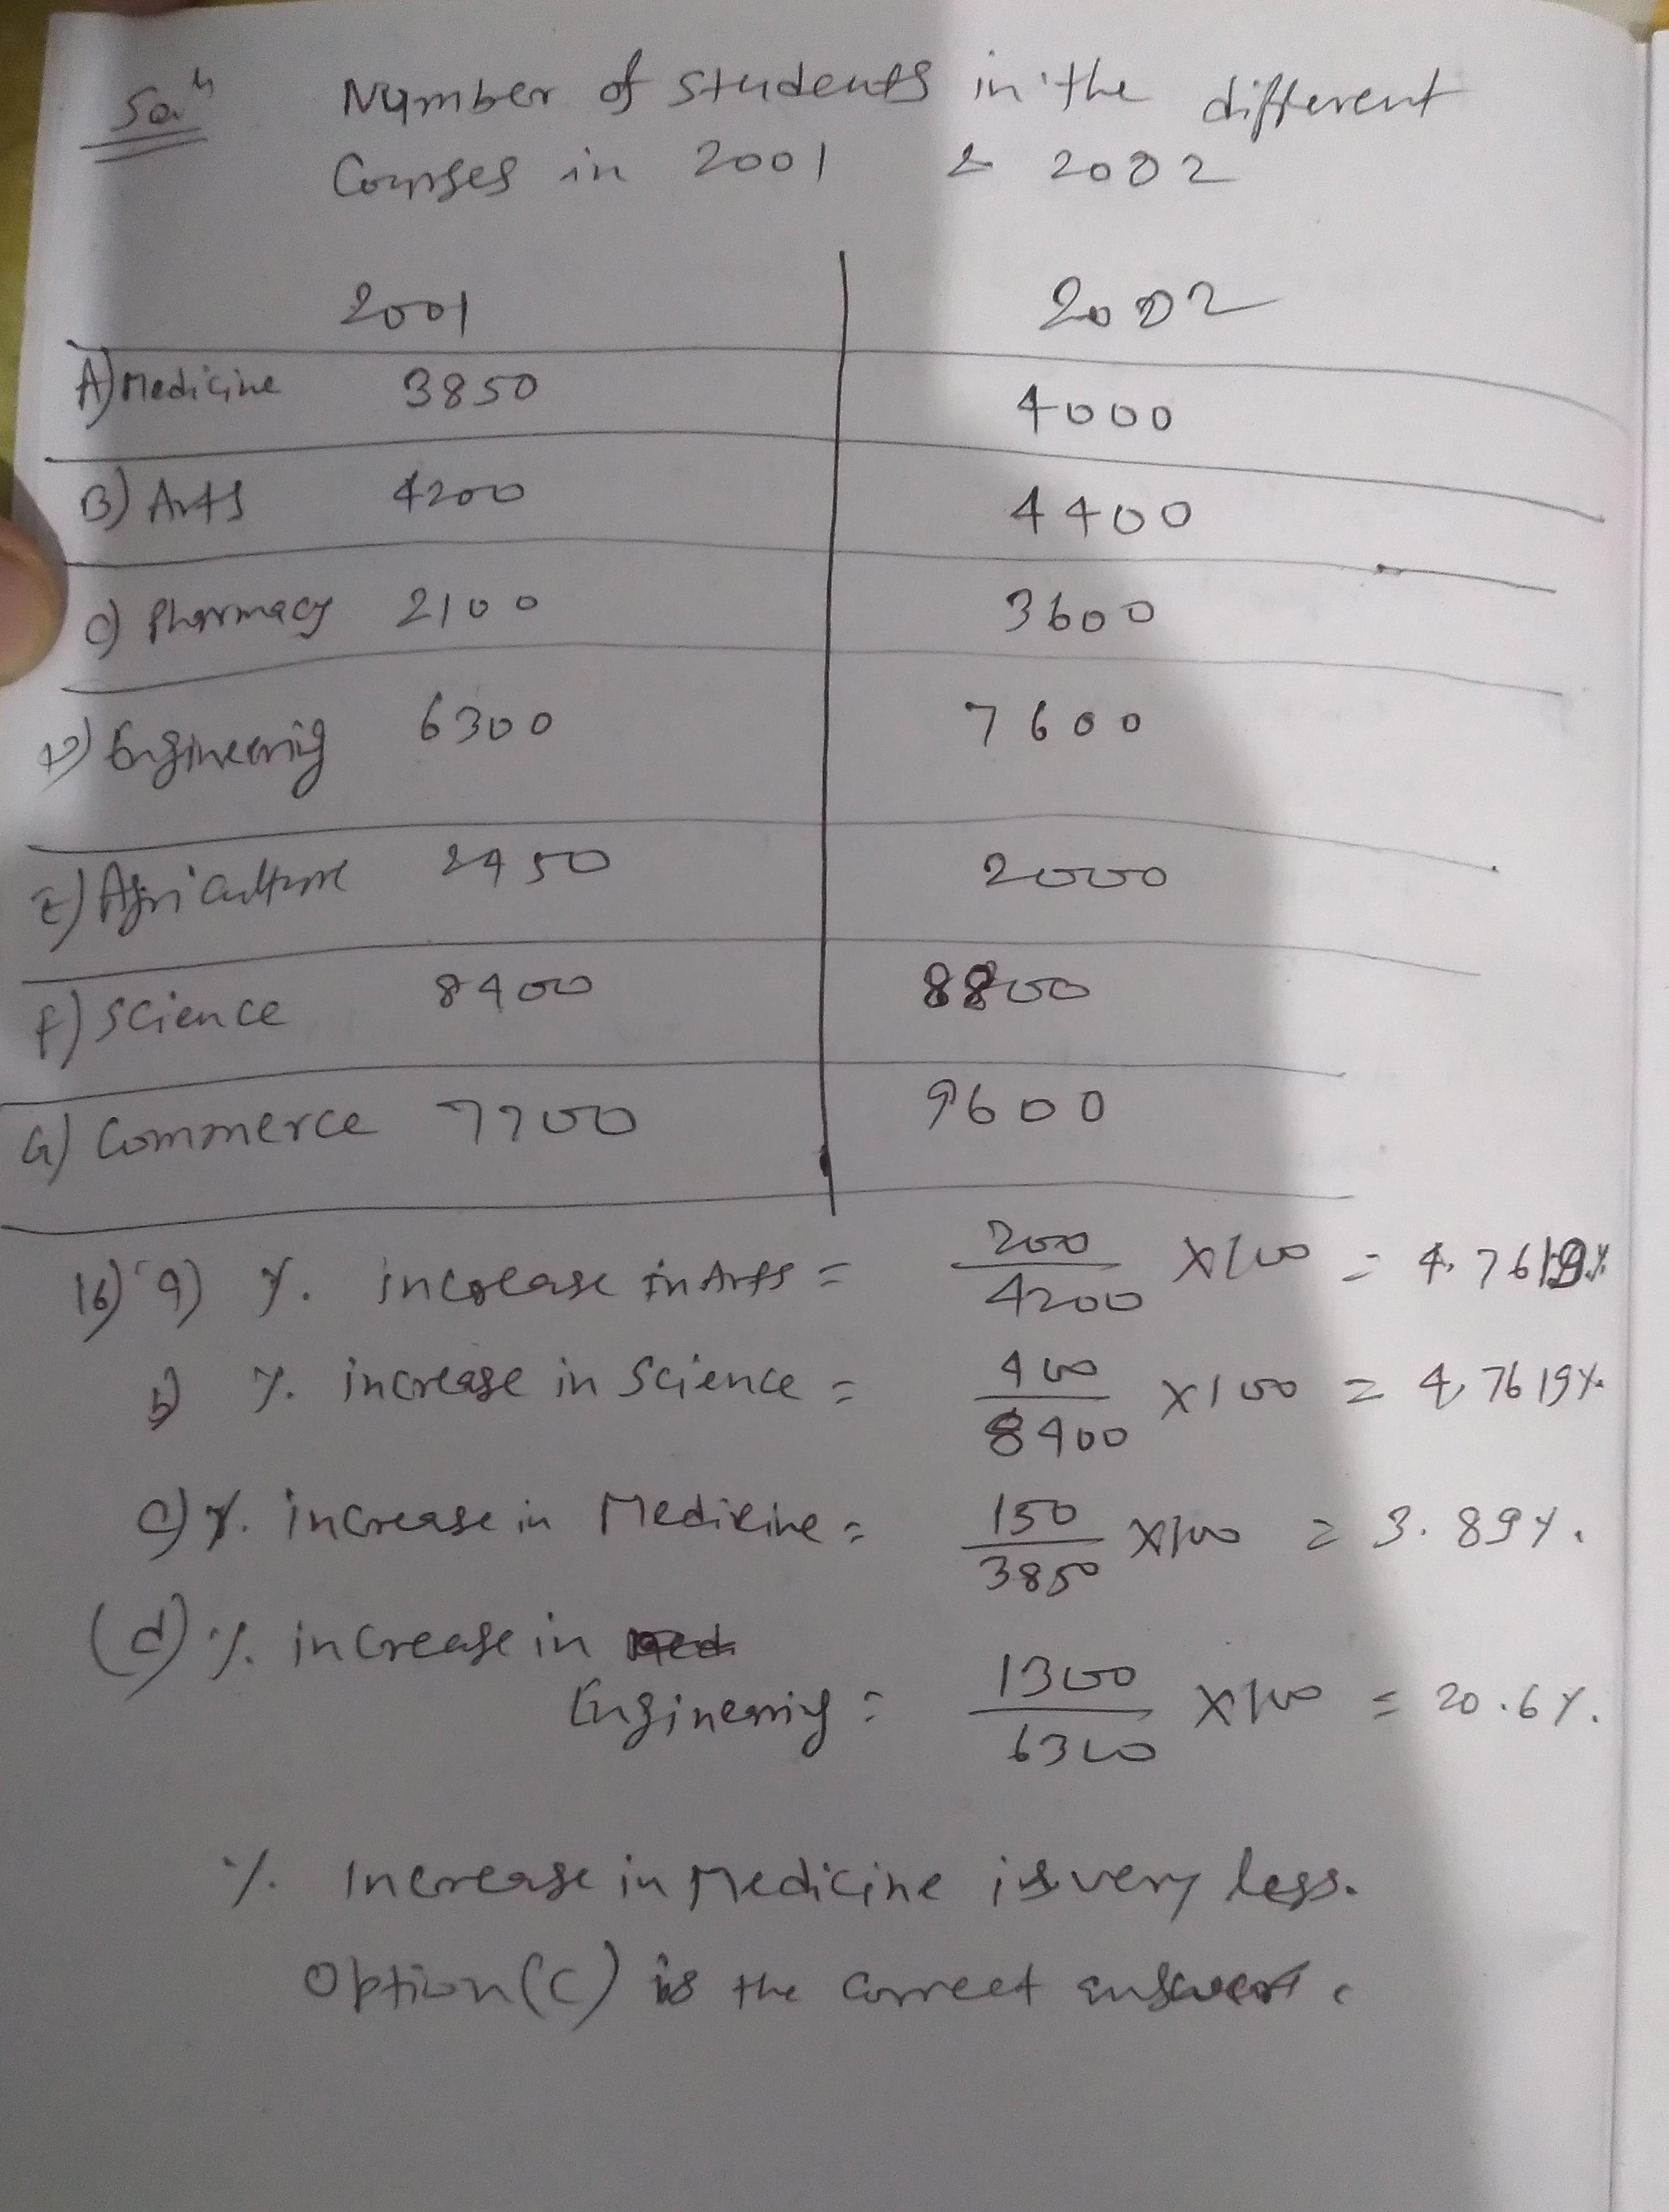 Soln Number of students in the different
Courses in 2001 & 2002
2001 2002
A) Medicine 3850 4000
B) Arts 4200 4400
C) Pharmacy 2100 3600
D) Engineering 6300 7600
E) Agriculture 2450 2000
F) Science 8400 8800
G) Commerce 7700 9600
16) a) %. increase in Arts = 200/4200 X100 = 4.7619%
b) %. increase in Science = 400/8400 X100 = 4.7619%
c) %. increase in Medicine = 150/3850 X100 = 3.89%.
(d) %. increase in
Engineering = 1300/6300 X100 = 20.6%.
%. Increase in Medicine is very less.
Option (C) is the correct answer.